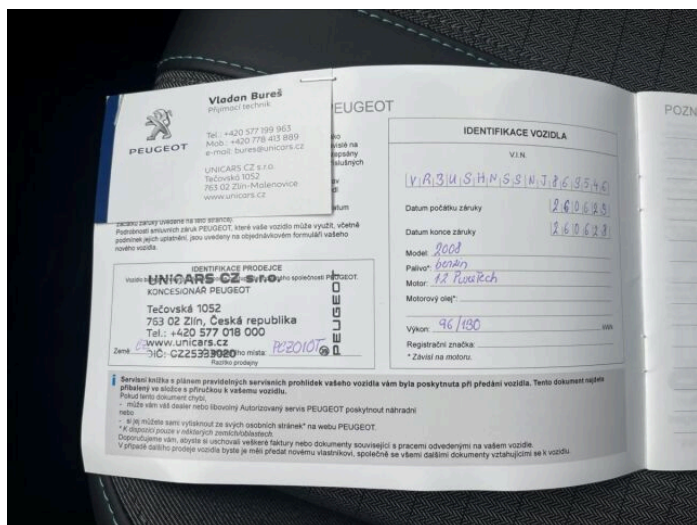 Vladan Bureš
Přijímací technik
PEUGEOT
Tel.: +420 577 199 963
Mob.: +420 778 413 889
e-mail: bures@unicars.cz
UNICARS CZ s.r.o.
Tečovská 1052
763 02 Zlín-Malenovice
www.unicars.cz
PEUGEOT
záruky uvedené na této straně).
Podrobnosti smluvních záruk PEUGEOT, které vaše vozidlo může využít, včetně
podmínek jejich uplatnění, jsou uvedeny na objednávkovém formuláři vašeho
nového vozidla.
IDENTIFIKACE PRODEJCE
UNICARS CZ s.r.o.
KONCESIONÁŘ PEUGEOT
Tečovská 1052
763 02 Zlín, Česká republika
Tel.: +420 577 018 000
www.unicars.cz
Země
DIČ: CZ25333020
místa:
Razítko prodejny
PEUGEOT
IDENTIFIKACE VOZIDLA
V.I.N.
VR3USHNSSNJ869546
Datum počátku záruky 260623
Datum konce záruky 260628
Model: 2008
Palivo*: benzin
Motor: 1.2 PureTech
Motorový olej*:
Výkon: 96/130 kWh
Registrační značka:
* Závisí na motoru.
POZN
i Servisní knížka s plánem pravidelných servisních prohlídek vašeho vozidla vám byla poskytnuta při předání vozidla. Tento dokument najdete
přibalený ve složce s příručkou k vašemu vozidlu.
Pokud tento dokument chybí,
- může vám váš dealer nebo libovolný Autorizovaný servis PEUGEOT poskytnout náhradní
nebo
- si jej můžete sami vytisknout ze svých osobních stránek* na webu PEUGEOT.
* K dispozici pouze v některých zemích/oblastech.
Doporučujeme vám, abyste si uschovali veškeré faktury nebo dokumenty související s pracemi odvedenými na vašem vozidle.
V případě dalšího prodeje vozidla byste je měli předat novému vlastníkovi, společně se všemi dalšími dokumenty vztahujícími se k vozidlu.